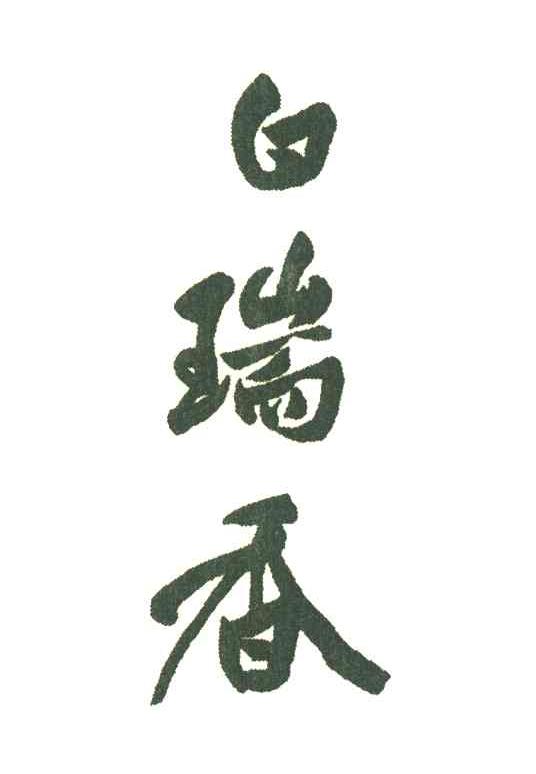 白瑞香